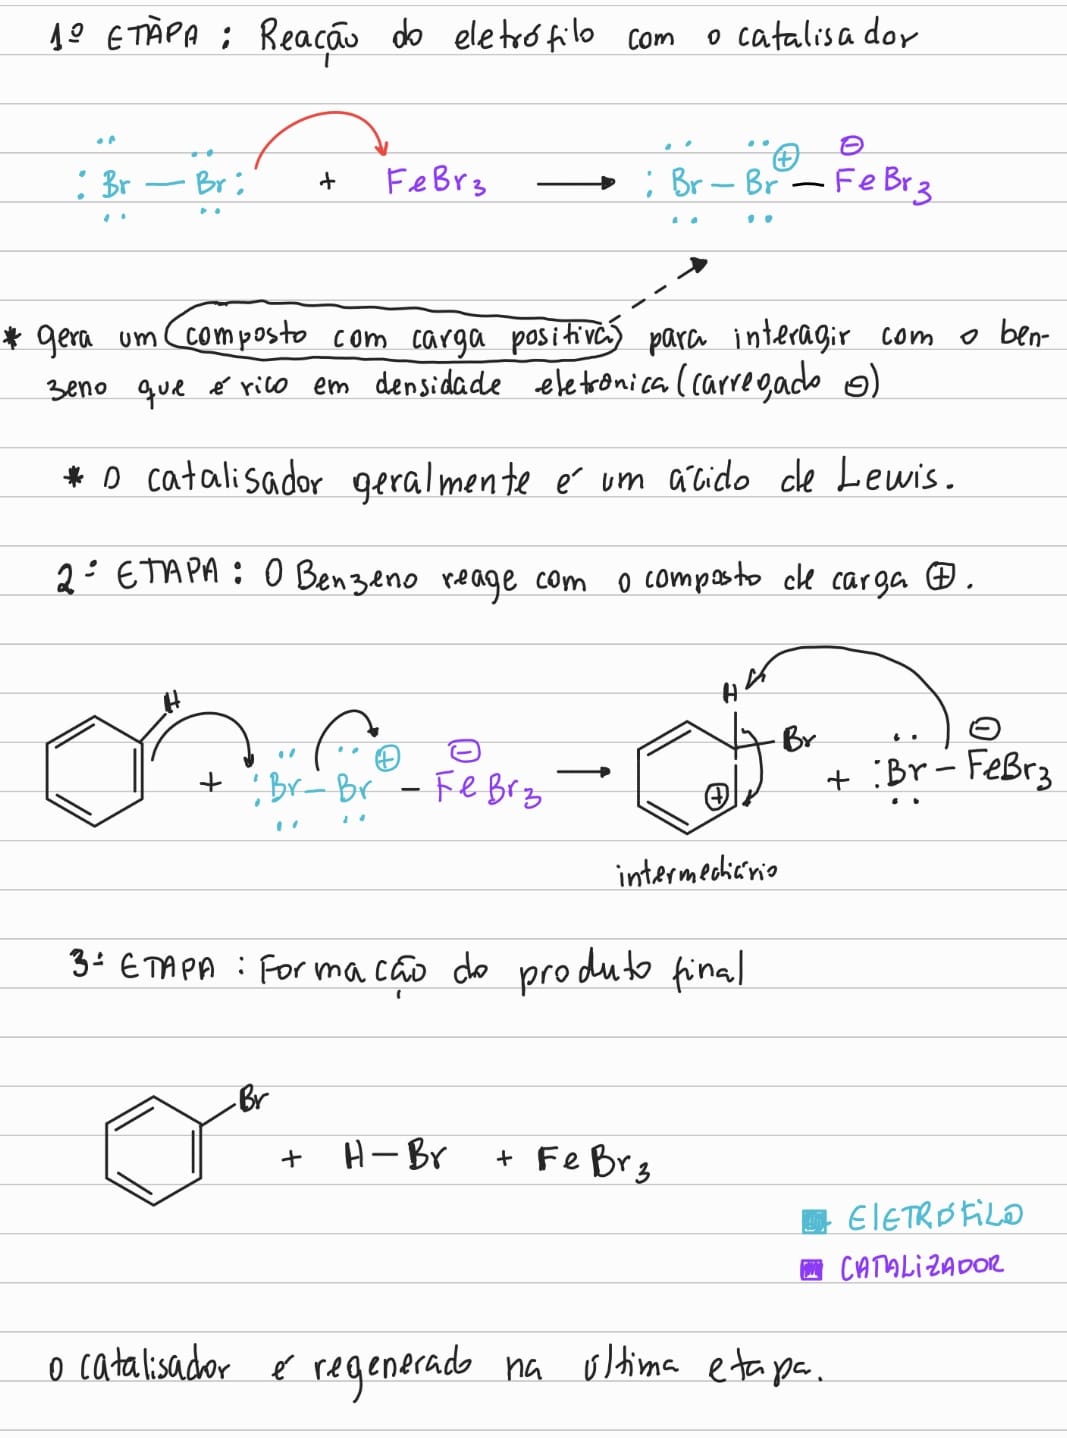 1º ETAPA : Reação do eletrófilo com o catalisador
:Br — Br: + FeBr3 → :Br — Br ⊕ — FeBr3 ⊖
* gera um composto com carga positiva para interagir com o ben-
zeno que é rico em densidade eletrônica (carregado ⊖)
* O catalisador geralmente é um ácido de Lewis.
2ª ETAPA : O Benzeno reage com o composto de carga ⊕.
H + :Br — Br ⊕ — FeBr3 ⊖ → H Br ⊕ + :Br — FeBr3 ⊖
intermediário
3ª ETAPA : Formação do produto final
Br + H — Br + FeBr3
ElETRÓFILO
CATALIZADOR
o catalisador é regenerado na última etapa.